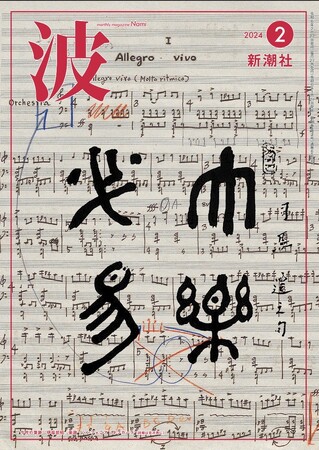 波
monthly magazine Nami
2024 2
新潮社
I
Allegro vivo
Allegro vivo (Molto ritmico)
Orchestra
大樂
必易
司馬遷之句